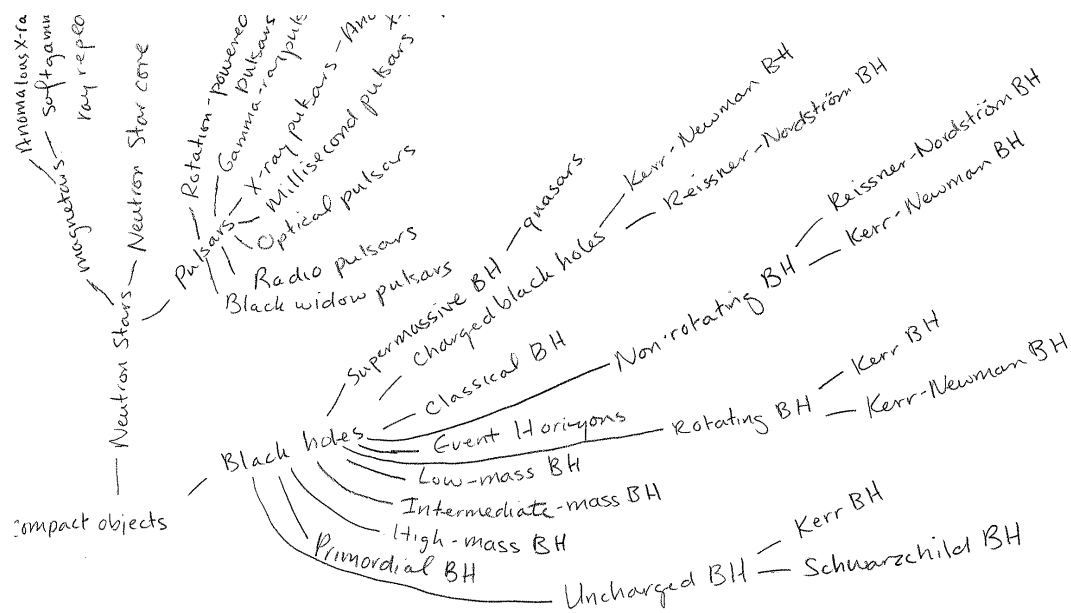 Anomalous X-ra
Soft gamm
ray repea
magnetars
Neutron Star core
Neutron Stars
Pulsars
Rotation-powered
pulsars
Gamma-ray pul
X-ray pulsars - Ano
X-
Millisecond pulsars
Optical pulsars
Radio pulsars
Black widow pulsars
Supermassive BH
quasars
Charged black holes
Kerr-Newman BH
Reissner-Nordström BH
Classical BH
Non-rotating BH
Reissner-Nordström BH
Kerr-Newman BH
Event Horizons
Rotating BH
Kerr BH
Kerr-Newman BH
Black holes
Low-mass BH
Intermediate-mass BH
High-mass BH
Primordial BH
Uncharged BH
Kerr BH
Schwarzchild BH
compact objects